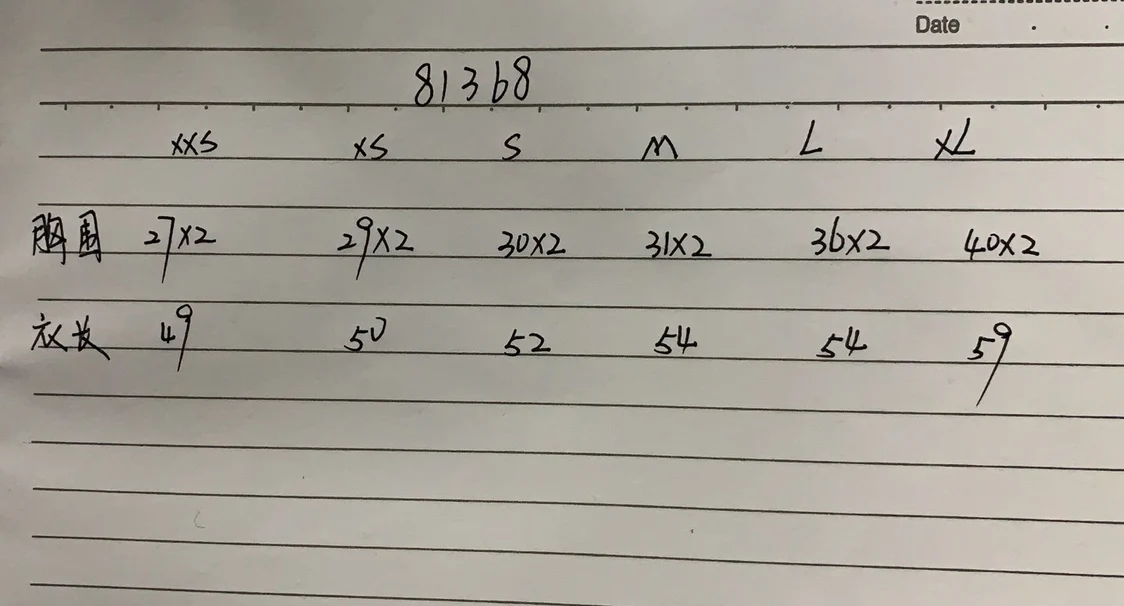 Date
81368
XXS XS S M L XL
胸围 27X2 29X2 30X2 31X2 36X2 40X2
衣长 49 50 52 54 54 59